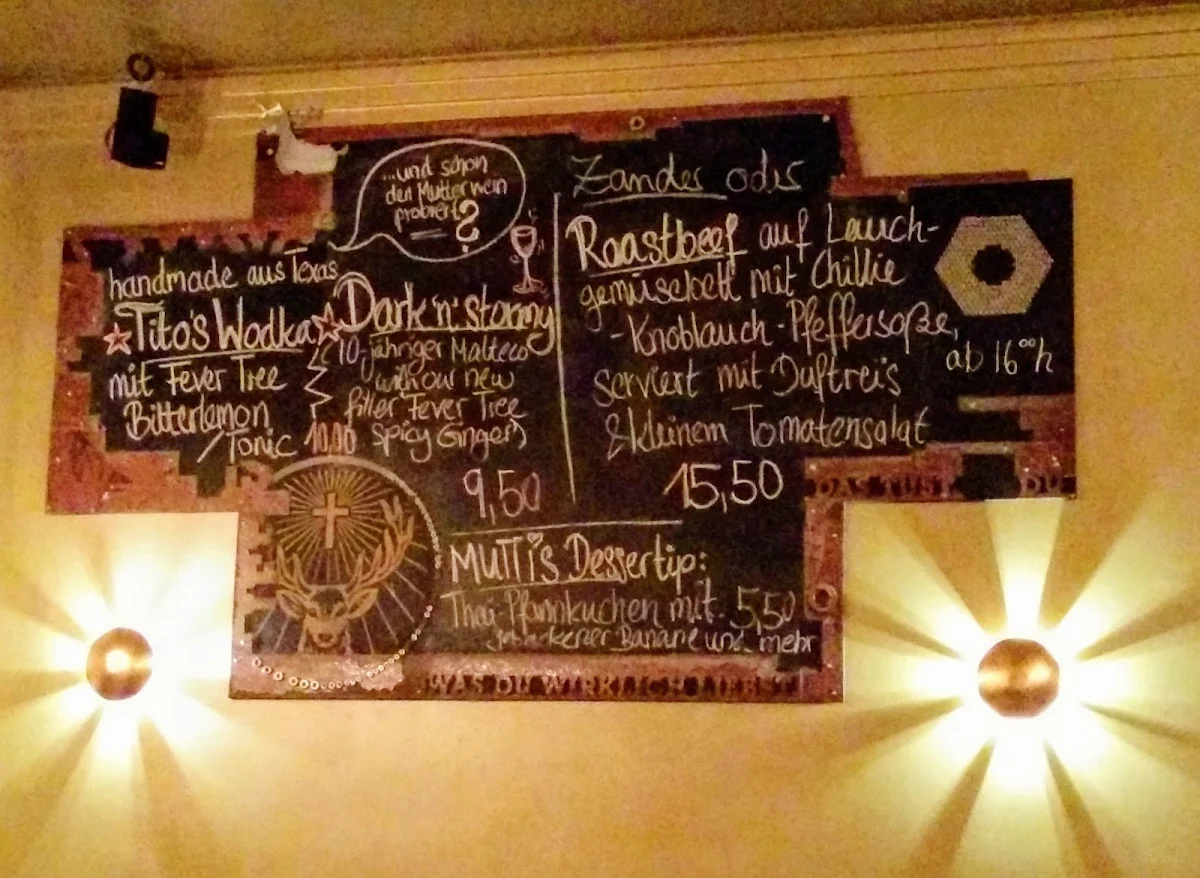 ...und schon
den Mutterwein
probiert?
handmade aus Texas
Tito's Wodka
mit Fever Tree
Bitterlemon
/Tonic 10.00
Dark 'n' stormy
10-jähriger Malteco
with our new
filler Fever Tree
Spicy Ginger
9,50
Zander oder
Roastbeef auf Lauch-
gemüsebett mit Chillie
-Knoblauch-Pfeffersoße,
serviert mit Duftreis
& kleinem Tomatensalat
15,50
ab 16°°h
MUTTis Dessertip:
Thai-Pfannkuchen mit 5,50
gebackener Banane und mehr
DAS TUST DU
WAS DU WIRKLICH LIEBST